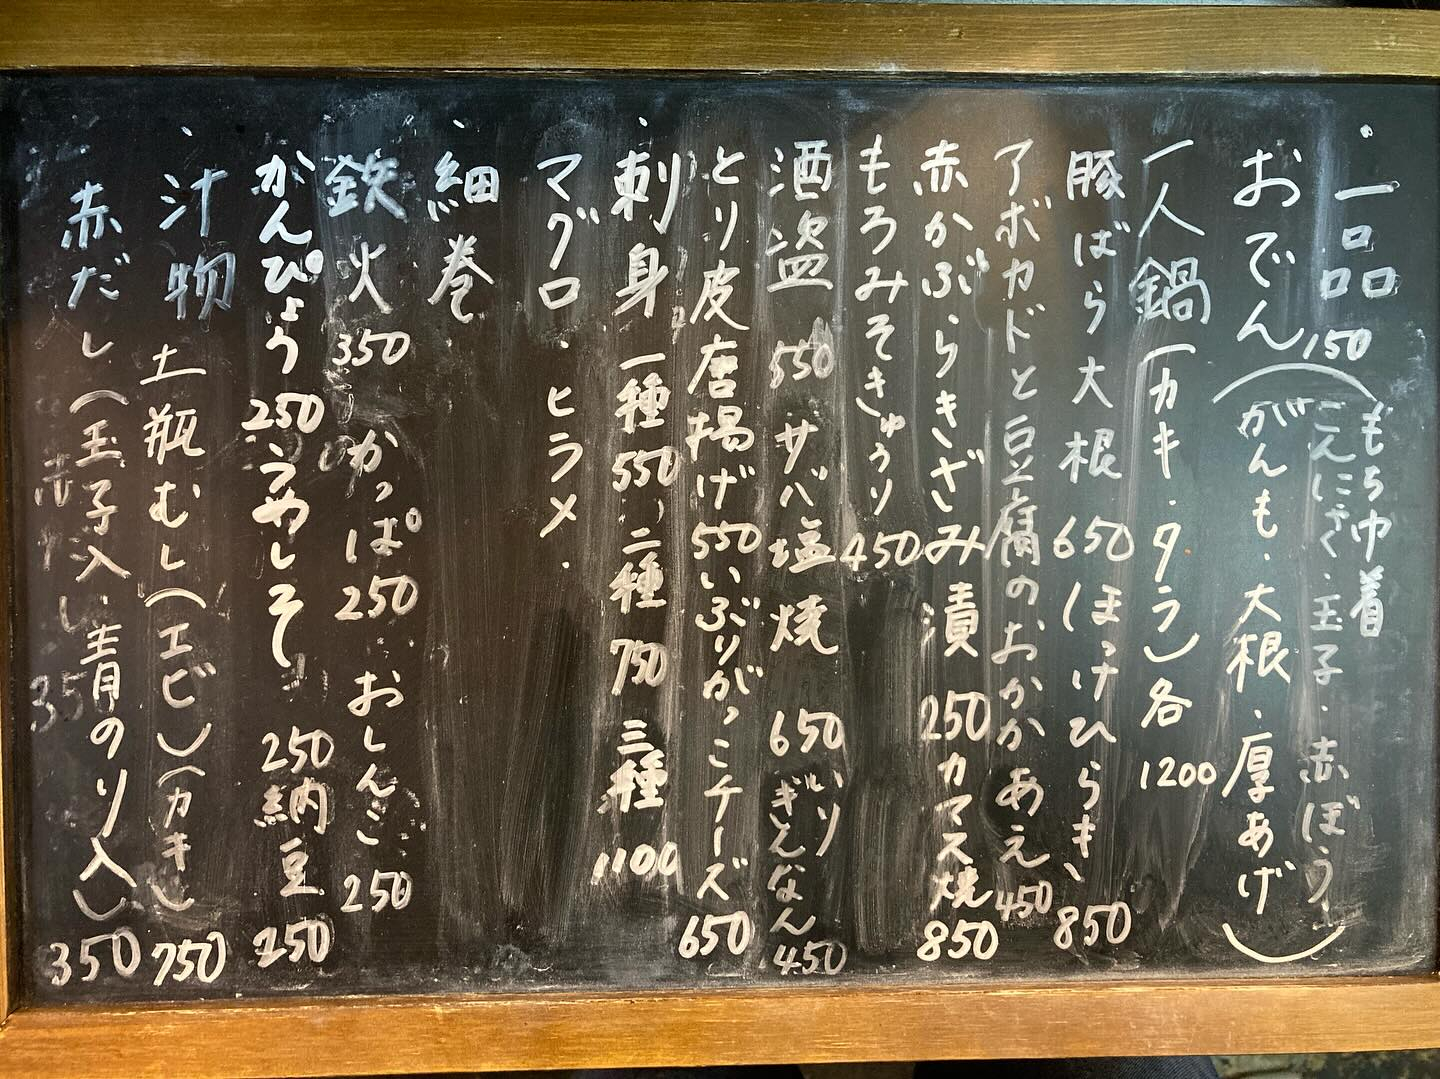 ・一品
おでん 150
(もち巾着
こんにゃく・玉子・赤ぼう
がんも・大根・厚あげ)
一人鍋(カキ・タラ)各1200
豚ばら大根 650 ほっけひらき 850
アボカドと豆腐のおかかあえ 450
赤かぶらきざみ漬 250 カマス焼 850
もろみそきゅうり 450
酒盗 550 サバ塩焼 650 いりぎんなん 450
とり皮唐揚げ 550 いぶりがっこチーズ 650
・刺身 一種 550、二種 750 三種 1100
マグロ・ヒラメ・
・細巻
鉄火 350 かっぱ 250 おしんこ 250
かんぴょう 250 うめしそ 250 納豆 250
・汁物 土瓶むし(エビ)(カキ) 750
赤だし(玉子入・青のり入) 350